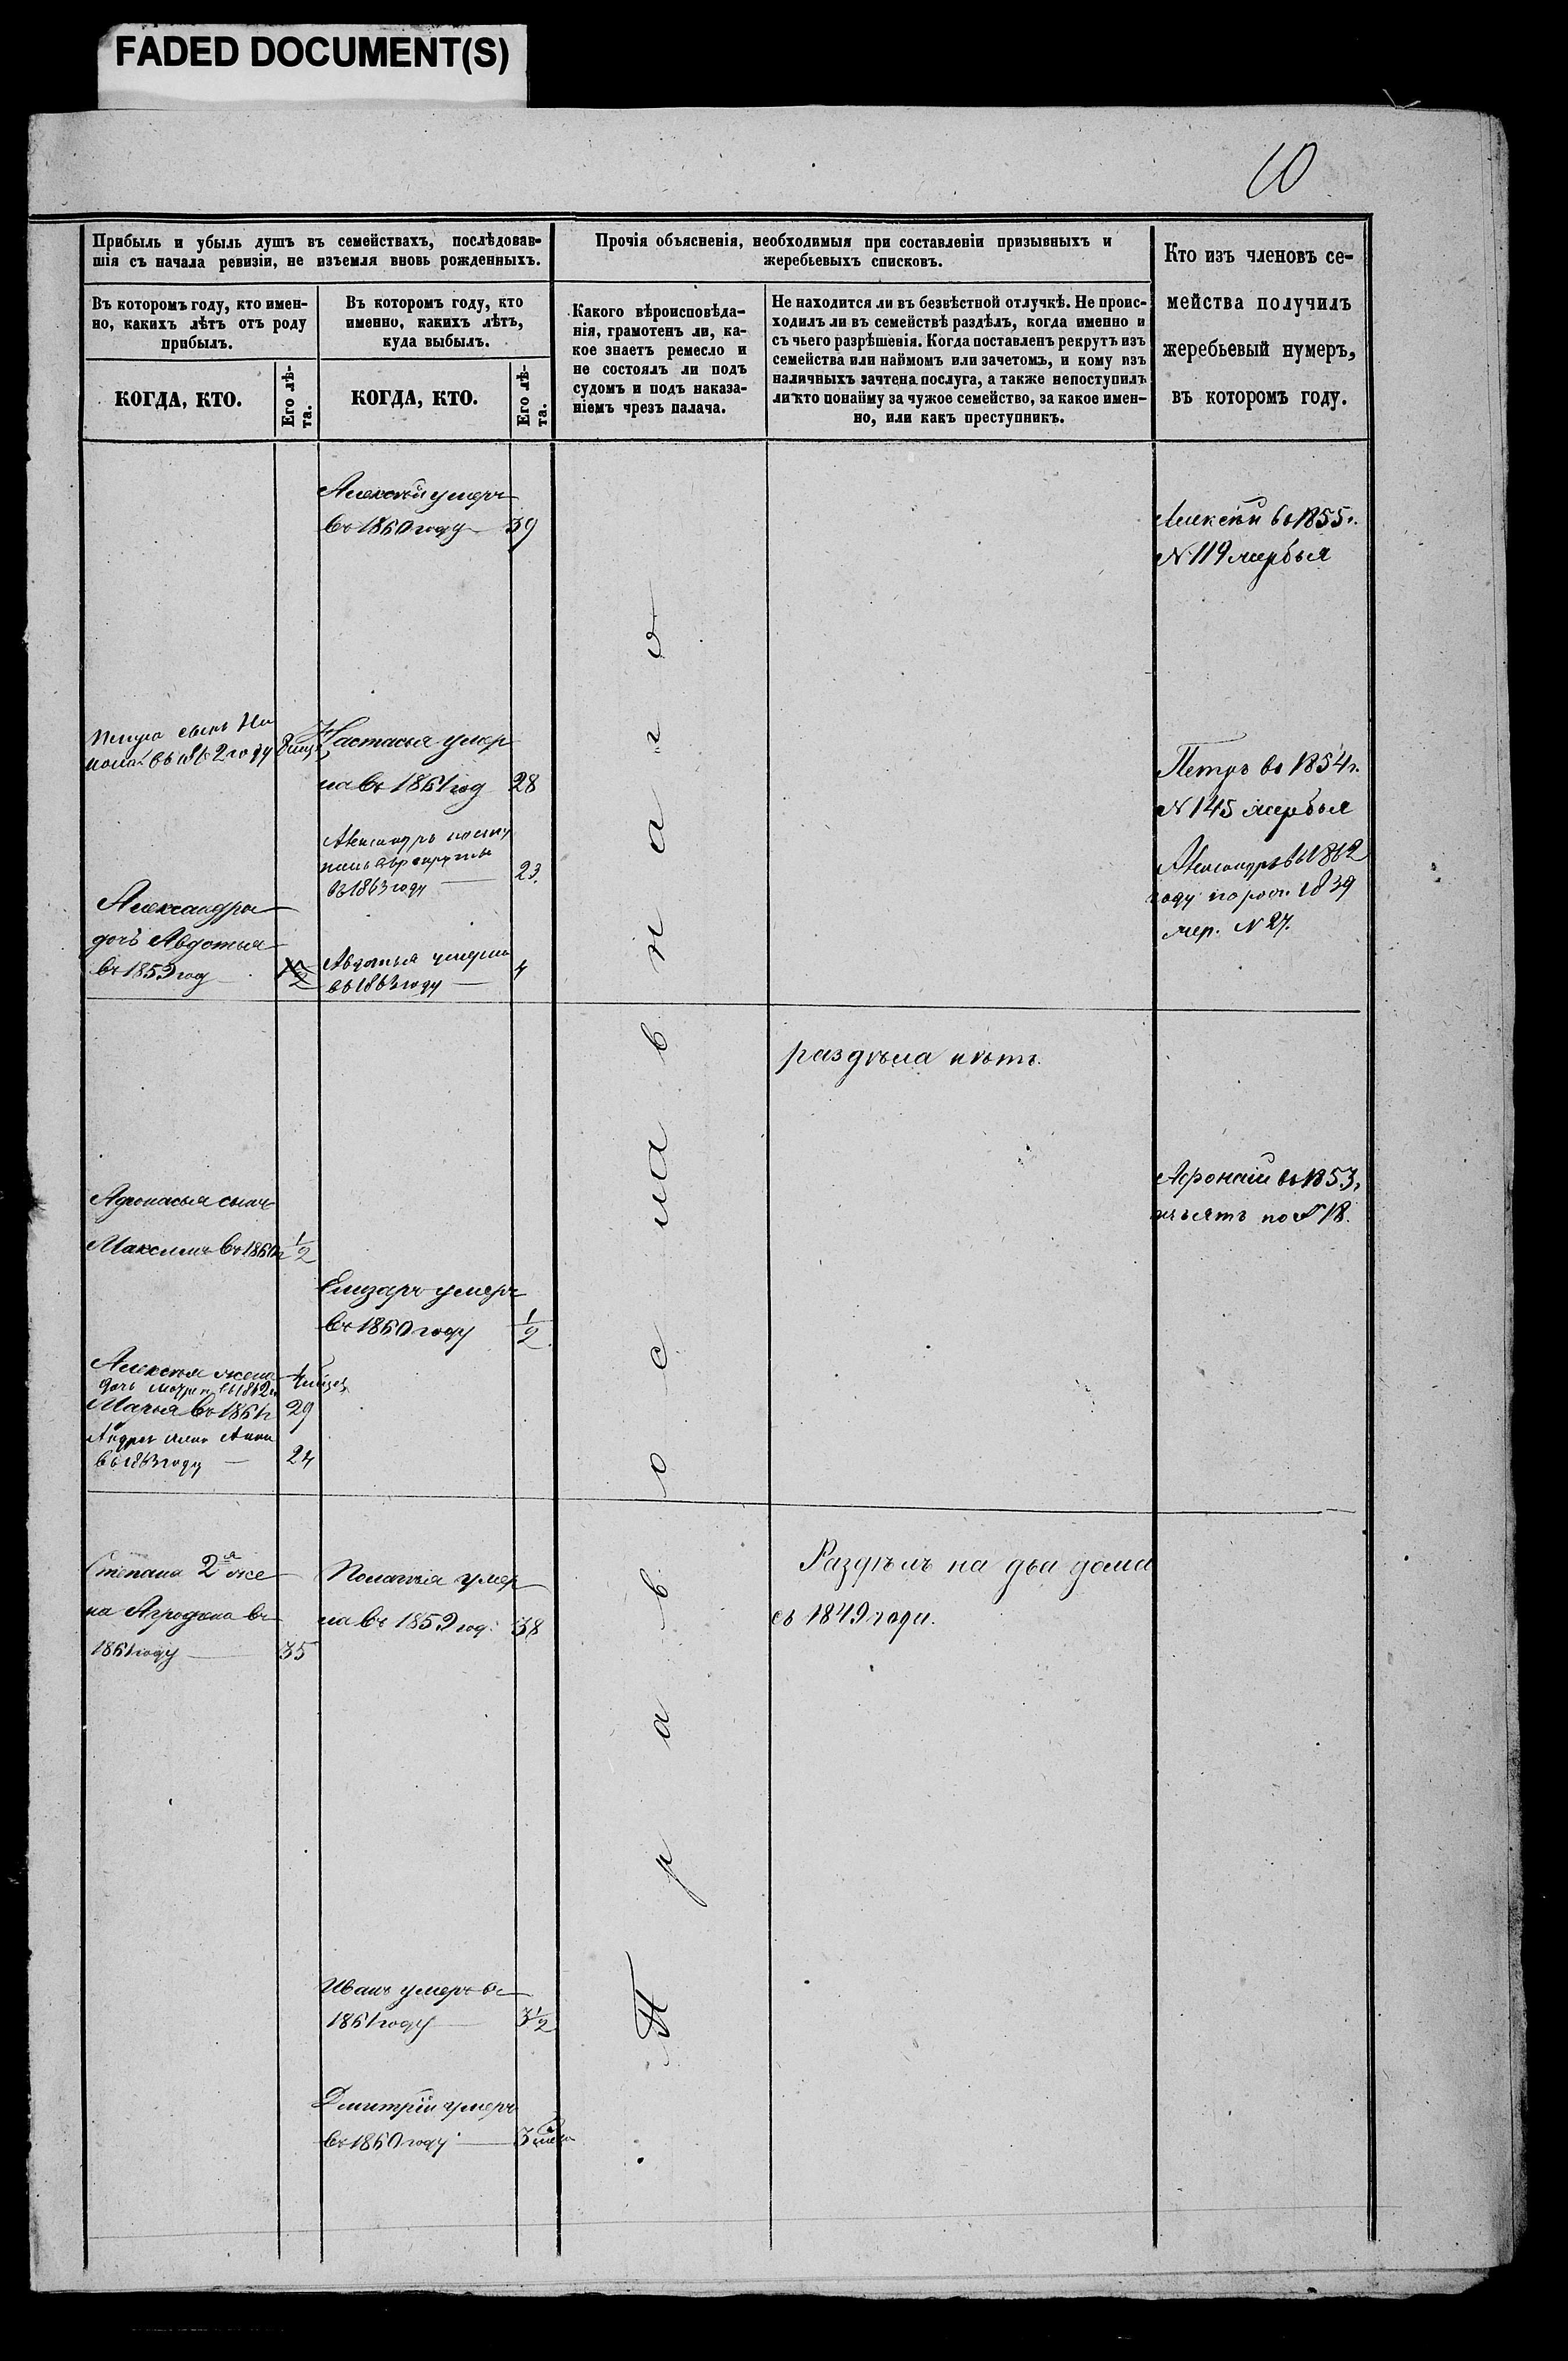 FADED DOCUMENT(S)
10
Прибыль и убыль душъ въ семействахъ, послѣдовав-
шія съ начала ревизіи, не изъемля вновь рожденныхъ.
Въ которомъ году, кто имен-
но, какихъ лѣтъ отъ роду
прибылъ.
КОГДА, КТО.
Его лѣ-
та.
Въ которомъ году, кто
именно, какихъ лѣтъ,
куда выбылъ.
КОГДА, КТО.
Его лѣ-
та.
Прочія объясненія, необходимыя при составленіи призывныхъ и
жеребьевыхъ списковъ.
Какого вѣроисповѣда-
нія, грамотенъ ли, ка-
кое знаетъ ремесло и
не состоялъ ли подъ
судомъ и подъ наказа-
ніемъ чрезъ палача.
Не находится ли въ безвѣстной отлучкѣ. Не проис-
ходилъ ли въ семействѣ раздѣлъ, когда именно и
съ чьего разрѣшенія. Когда поставленъ рекрутъ изъ
семейства или наймомъ или зачетомъ, и кому изъ
наличныхъ зачтена послуга, а также непоступилъ
ли кто понайму за чужое семейство, за какое имен-
но, или какъ преступникъ.
Кто изъ членовъ се-
мейства получилъ
жеребьевый нумеръ,
въ которомъ году.
Алексѣй умеръ
въ 1860 году 39
Алексѣй въ 1855г.
N 119 жербья
сынъ
въ 1862 году
Настасья умер
ла въ 1861 год 28
Петръ въ 1854г.
N 145 жербья
Александръ посту
пилъ въ рекруты
въ 1863 году 23.
Александръ въ 1862
году 1839
жер. N 27.
Александра
дочь Авдотья
въ 1859 год 1/2
Авдотья умерла
въ 1863 году 4
раздѣла нѣтъ.
Афонасья сынъ
Максимъ въ 1860г 1/2
Афонасій въ 1853г
изъятъ по N 18.
Елизаръ умеръ
въ 1860 году 1/2
Алексѣя жена
дочь въ 1862г
Марья въ 1861г 29
Андрея жена Анна
въ 1863 году 24
Степана 2я же
на Агрофена въ
1861 году 35
Полагѣя умер
ла въ 1859 год. 38
Раздѣлъ на два дома
съ 1849 года.
Иванъ умеръ въ
1861 году 3 1/2
Дмитрій умеръ
въ 1860 году
Православнаго